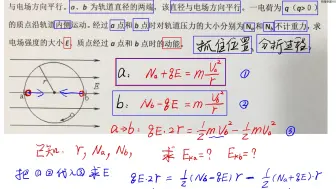 与电场方向平行。a、b为轨道直径的两端，该直径与电场方向平行，一电荷为q（q>0）
的质点沿轨道内侧运动。经过a点和b点时对轨道压力的大小分别为Na和Nb不计重力，求
电场强度的大小E、质点经过a点和b点时的动能。
抓位置，分析过程
a: Na+qE=m V²/r ①
b: Nb-qE=m V²/r ②
a→b: qE·2r=½mVb²-½mVa² ③
已知: r, Na, Nb, 求 Eka=? Ekb=?
把①②代入③求E
qE·2r=½(Nb-qE)r-½(Na+qE)·r